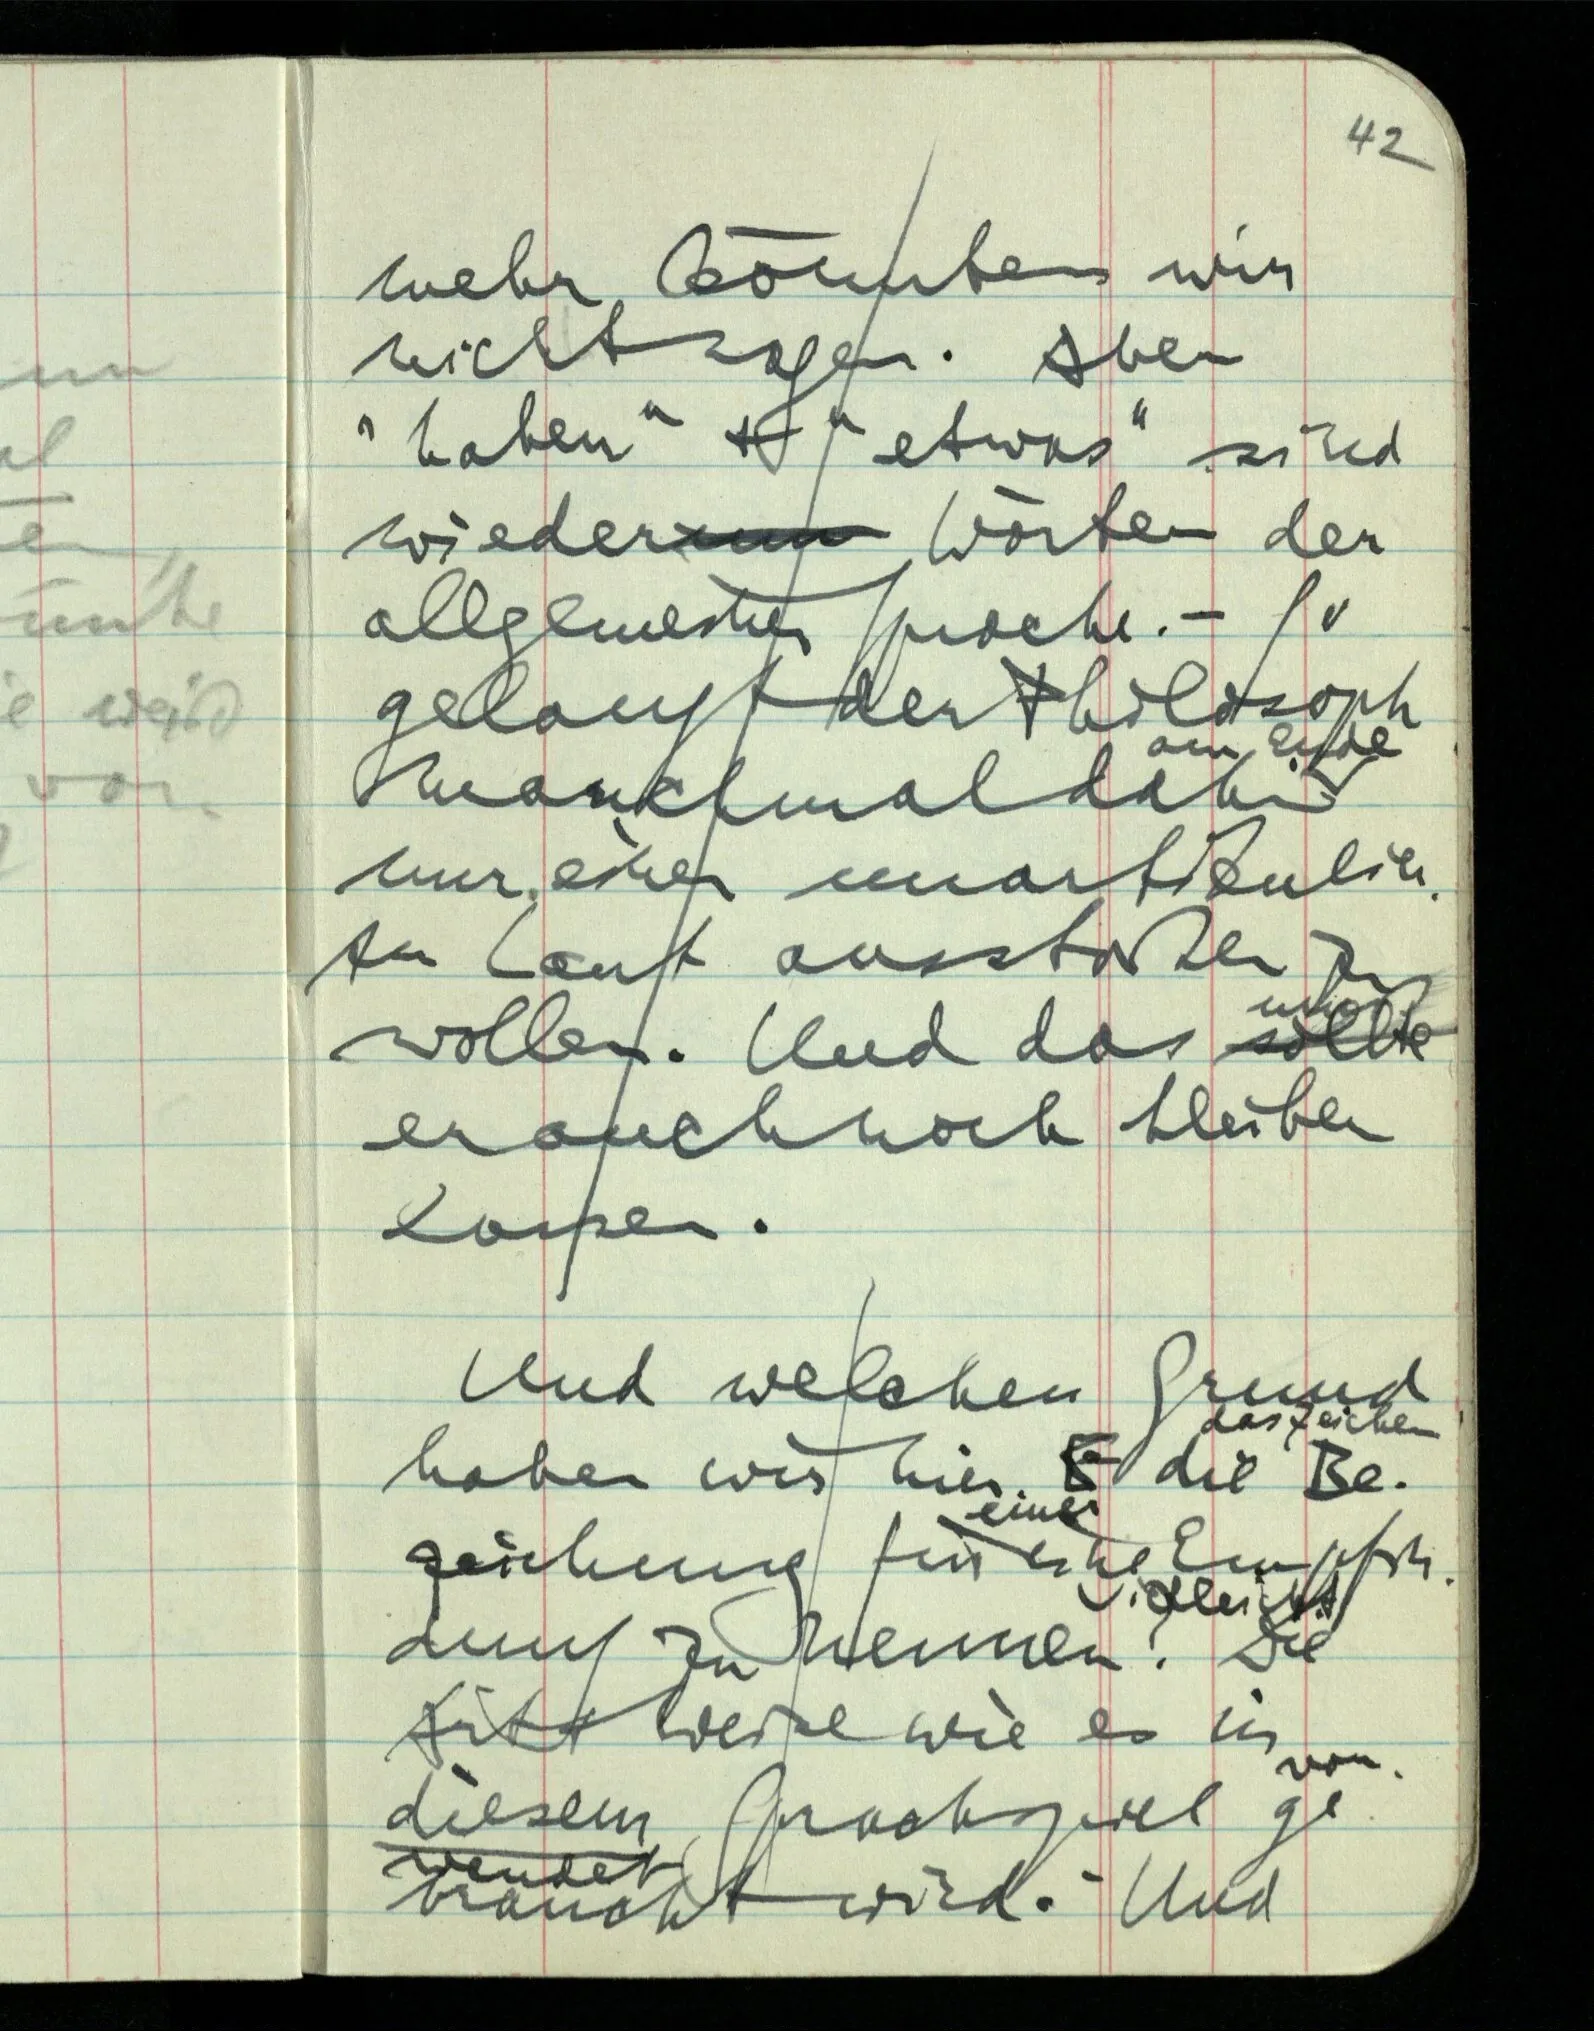 42
mehr könnten wir
nicht sagen. Aber
"haben" & "etwas" sind
wiederum Wörter der
allgemeinen Sprache. – So
gelangt der Philosoph
am Ende
manchmal dahin
nur einen unartikulier-
ten Laut ausstoßen zu
wollen. Und das
sollte
er auch noch bleiben
lassen.
Und welchen Grund
das Zeichen
haben wir hier E die Be-
einer
zeichnung für eine Empfin-
vielleicht
dung zu nennen? Die
Art & Weise wie es in
ver-
diesem Sprachspiel ge
wendet
braucht wird. – Und
weiß
von